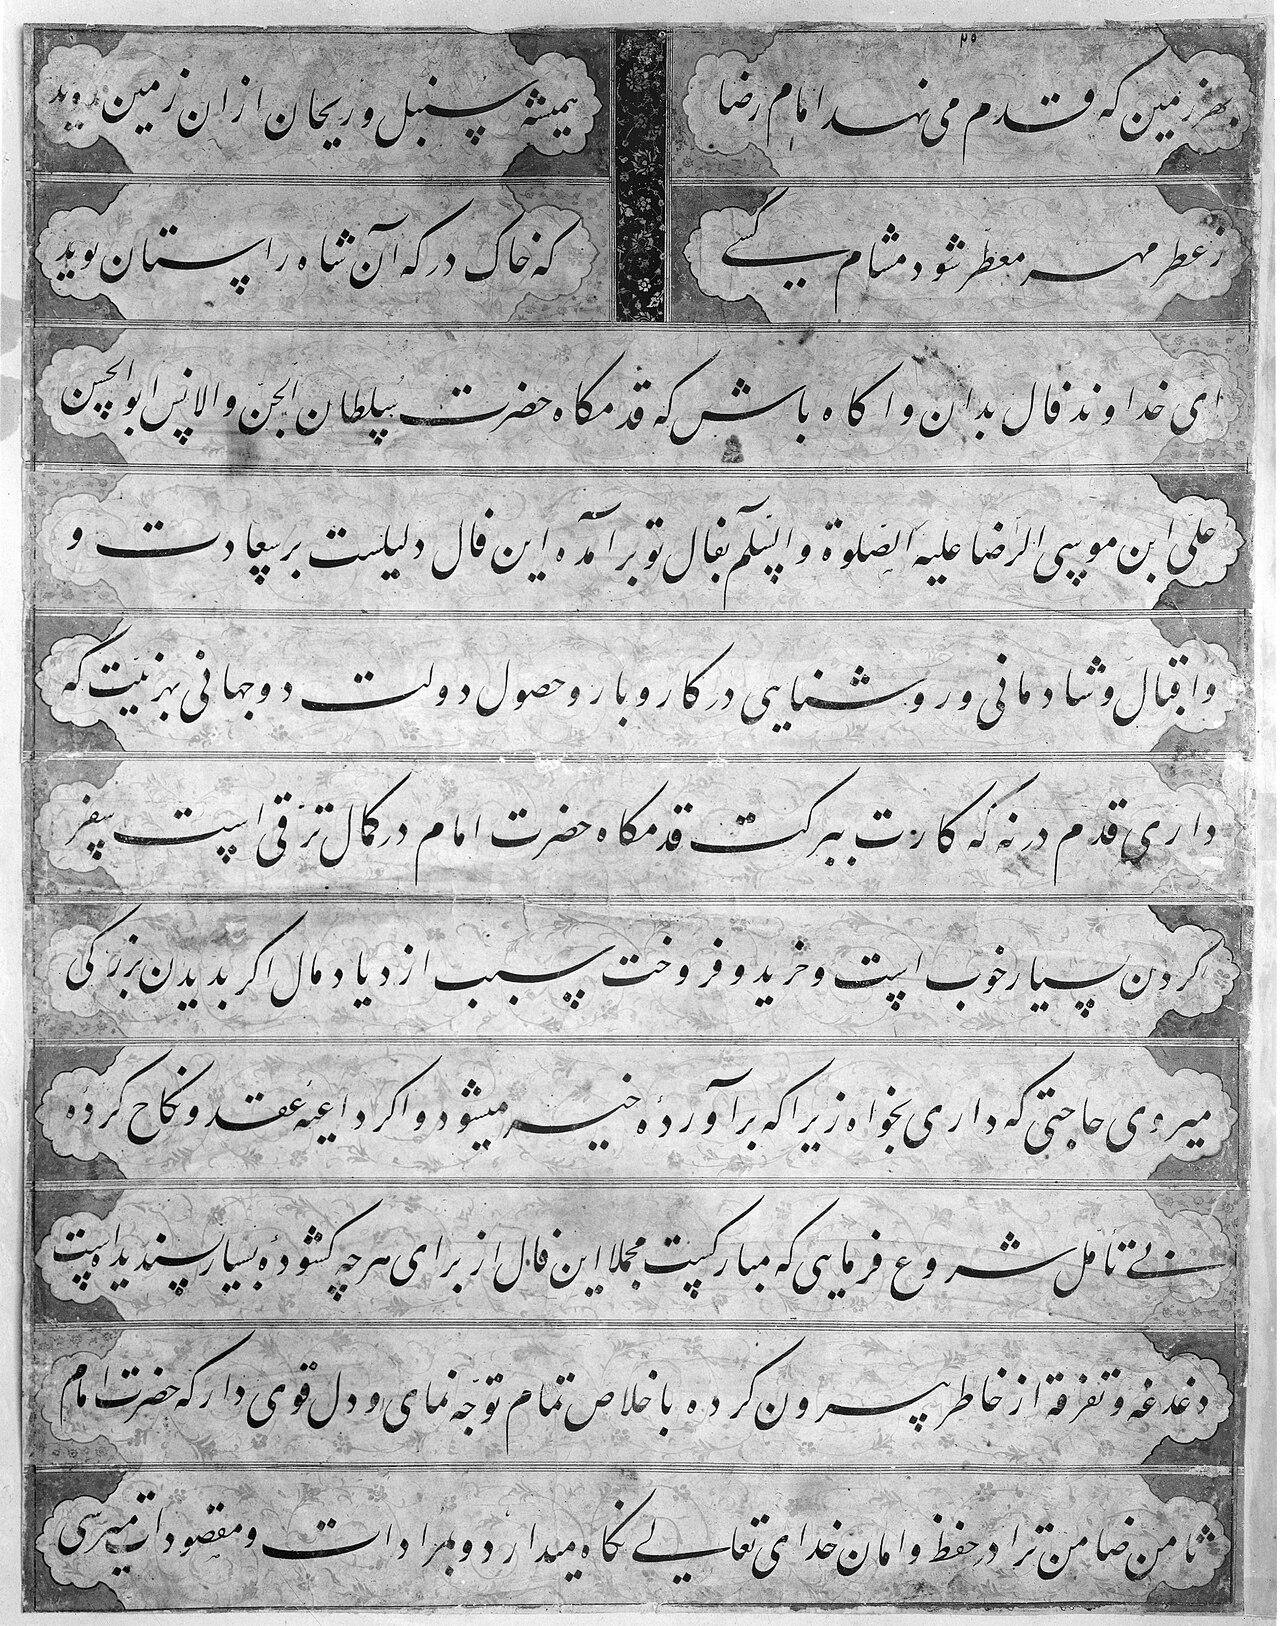 ۲۵
بهر زمین که قدم می نهد امام رضا همیشه سنبل و ریحان ازان زمین روید
ز عطر مهر معطر شود مشام کسی که خاک درکه آن شاه راستان بوید
ای خداوند فال بدان و اکاه باش که قدمکاه حضرت سلطان الجن والانس ابوالحسن
علی ابن موسی الرضا علیه الصلوة والسلم بفال تو برآمده این فال دلیلست بر سعادت و
و اقبال و شادمانی و روشنایی در کار و بار و حصول دولت دو جهانی بهر نیت که
داری قدم درنه که کارت ببرکت قدمکاه حضرت امام در کمال ترقی است سفر
کردن بسیار خوب است و خرید و فروخت سبب ازدیاد مال اکر بدیدن بزرکی
میروی حاجتی که داری بخواه زیرا که برآورده خیر میشود و اکر داعیه عقد و نکاح کرده
بی تأمل شروع فرمایی که مبارکست مجملا این فال از برای هرچه کشوده بسیار پسندیده است
دغدغه و تفرقه از خاطر بیرون کرده باخلاص تمام توجه نمای و دل قوی دار که حضرت امام
ثامن ضامن ترا در حفظ و امان خدای تعالی نکاه میدارد و بمرادات و مقصودات میرسی